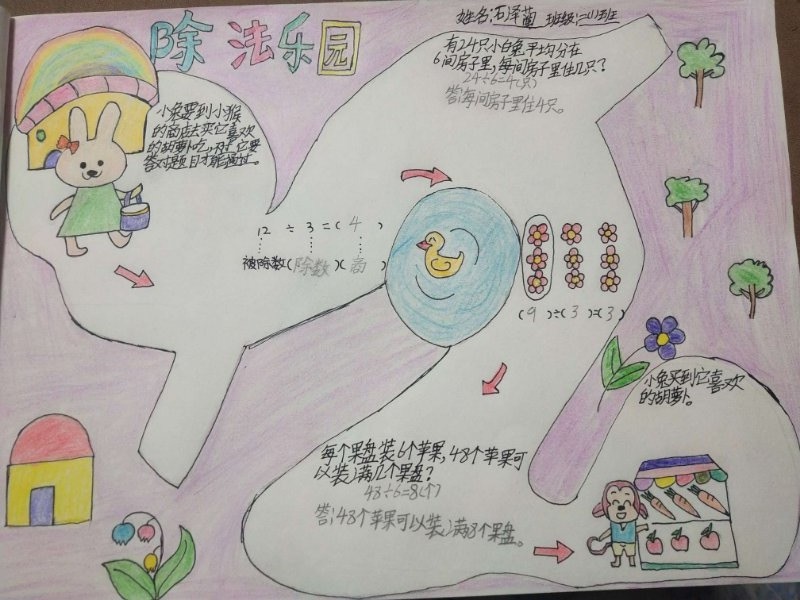 除法乐园
姓名:石泽蔺 班级:二(1)班
小兔要到小猴
的商店去买它喜欢
的胡萝卜吃,对,它要
答对题目才能通过。
有24只小白兔平均分在
6间房子里,每间房子里住几只?
24÷6=4(只)
答:每间房子里住4只。
12 ÷ 3 =( 4 )
被除数(除数)(商)
(9)÷(3)=(3)
每个果盘装6个苹果,48个苹果可
以装满几个果盘?
48÷6=8(个)
答:48个苹果可以装满8个果盘。
小兔买到它喜欢
的胡萝卜。